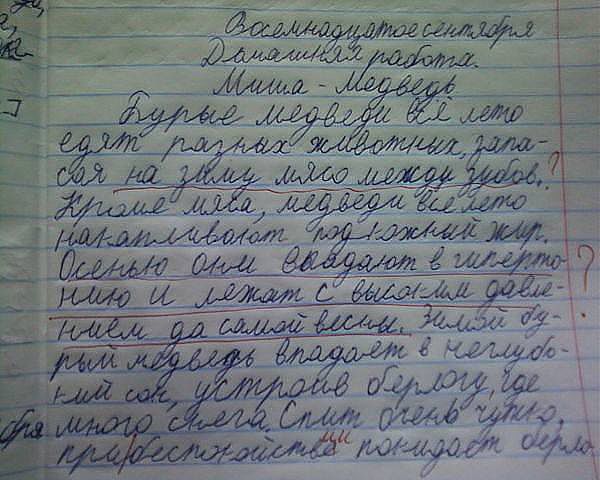 Восемнадцатое сентября
Домашняя работа.
Миша - Медведь
Бурые медведи всё лето
едят разных животных, запа-
сая на зиму мясо между зубов. ?
Кроме мяса, медведи всё лето
накапливают подкожный жир.
Осенью они впадают в гиперто- ?
нию и лежат с высоким давле-
нием да самой весны. Зимой бу-
рый медведь впадает в неглубо-
кий сон, устроив берлогу, где
много снега. Спит очень чутко,
при беспокойстве покидает берло